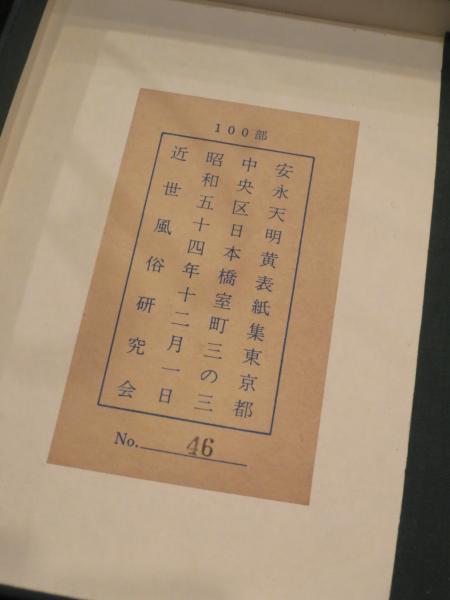 100部
安永天明黄表紙集東京都
中央区日本橋室町三の三
昭和五十四年十二月一日
近世風俗研究会
No. 46